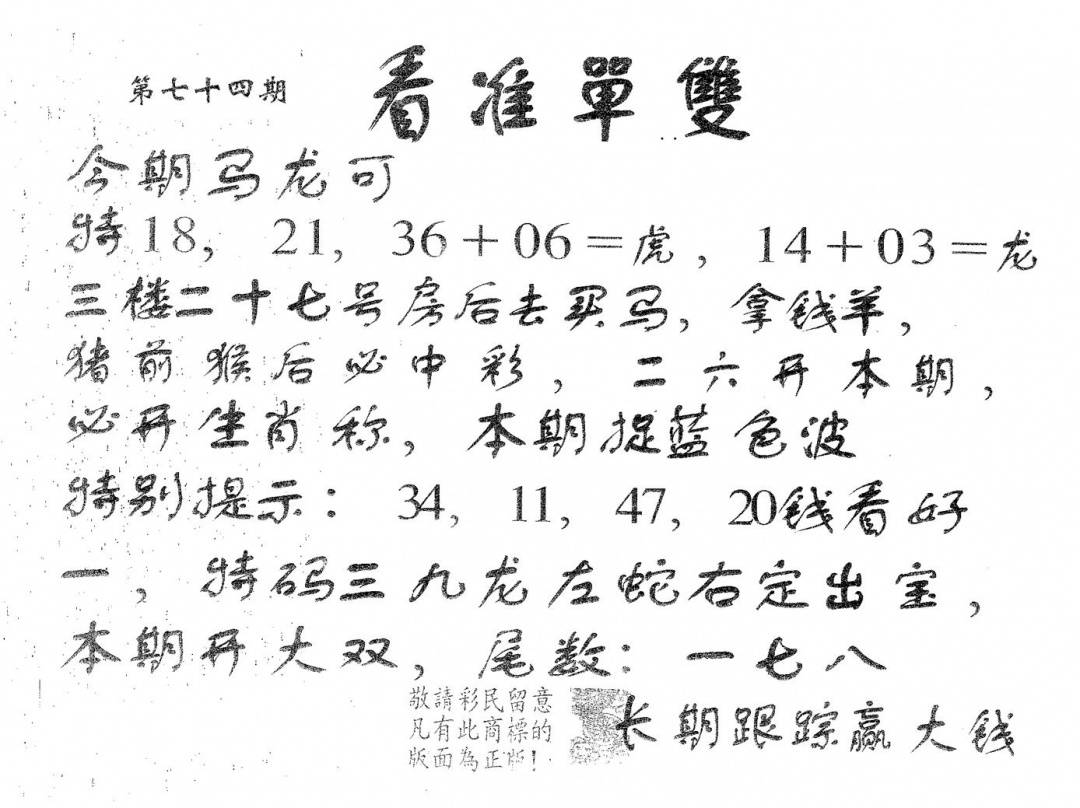 第七十四期
看准單雙
今期马龙可
特18, 21, 36+06=虎, 14+03=龙
三楼二十七号房后去买马, 拿钱羊,
猪前猴后必中彩, 二六开本期,
必开生肖称, 本期捉蓝色波
特别提示: 34, 11, 47, 20钱看好
一, 特码三九龙左蛇右定出宝,
本期开大双, 尾数: 一七八
敬請彩民留意
凡有此商標的
版面為正版!
长期跟踪赢大钱